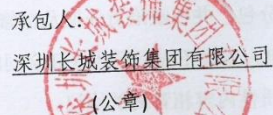 承包人:
深圳长城装饰集团有限公司
(公章)